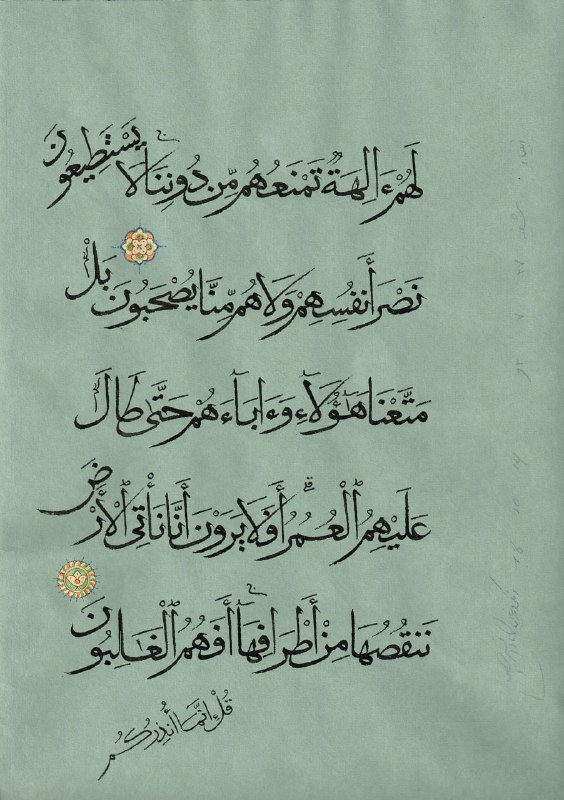 لَهُمْ ءَالِهَةٌ تَمْنَعُهُم مِّن دُونِنَا ۚ لَا يَسْتَطِيعُونَ
نَصْرَ أَنفُسِهِمْ وَلَا هُم مِّنَّا يُصْحَبُونَ بَلْ
مَتَّعْنَا هَٰٓؤُلَآءِ وَءَابَآءَهُمْ حَتَّىٰ طَالَ
عَلَيْهِمُ ٱلْعُمُرُ ۗ أَفَلَا يَرَوْنَ أَنَّا نَأْتِى ٱلْأَرْضَ
نَنقُصُهَا مِنْ أَطْرَافِهَآ ۚ أَفَهُمُ ٱلْغَـٰلِبُونَ
قُلْ إِنَّمَآ أُنذِرُكُم